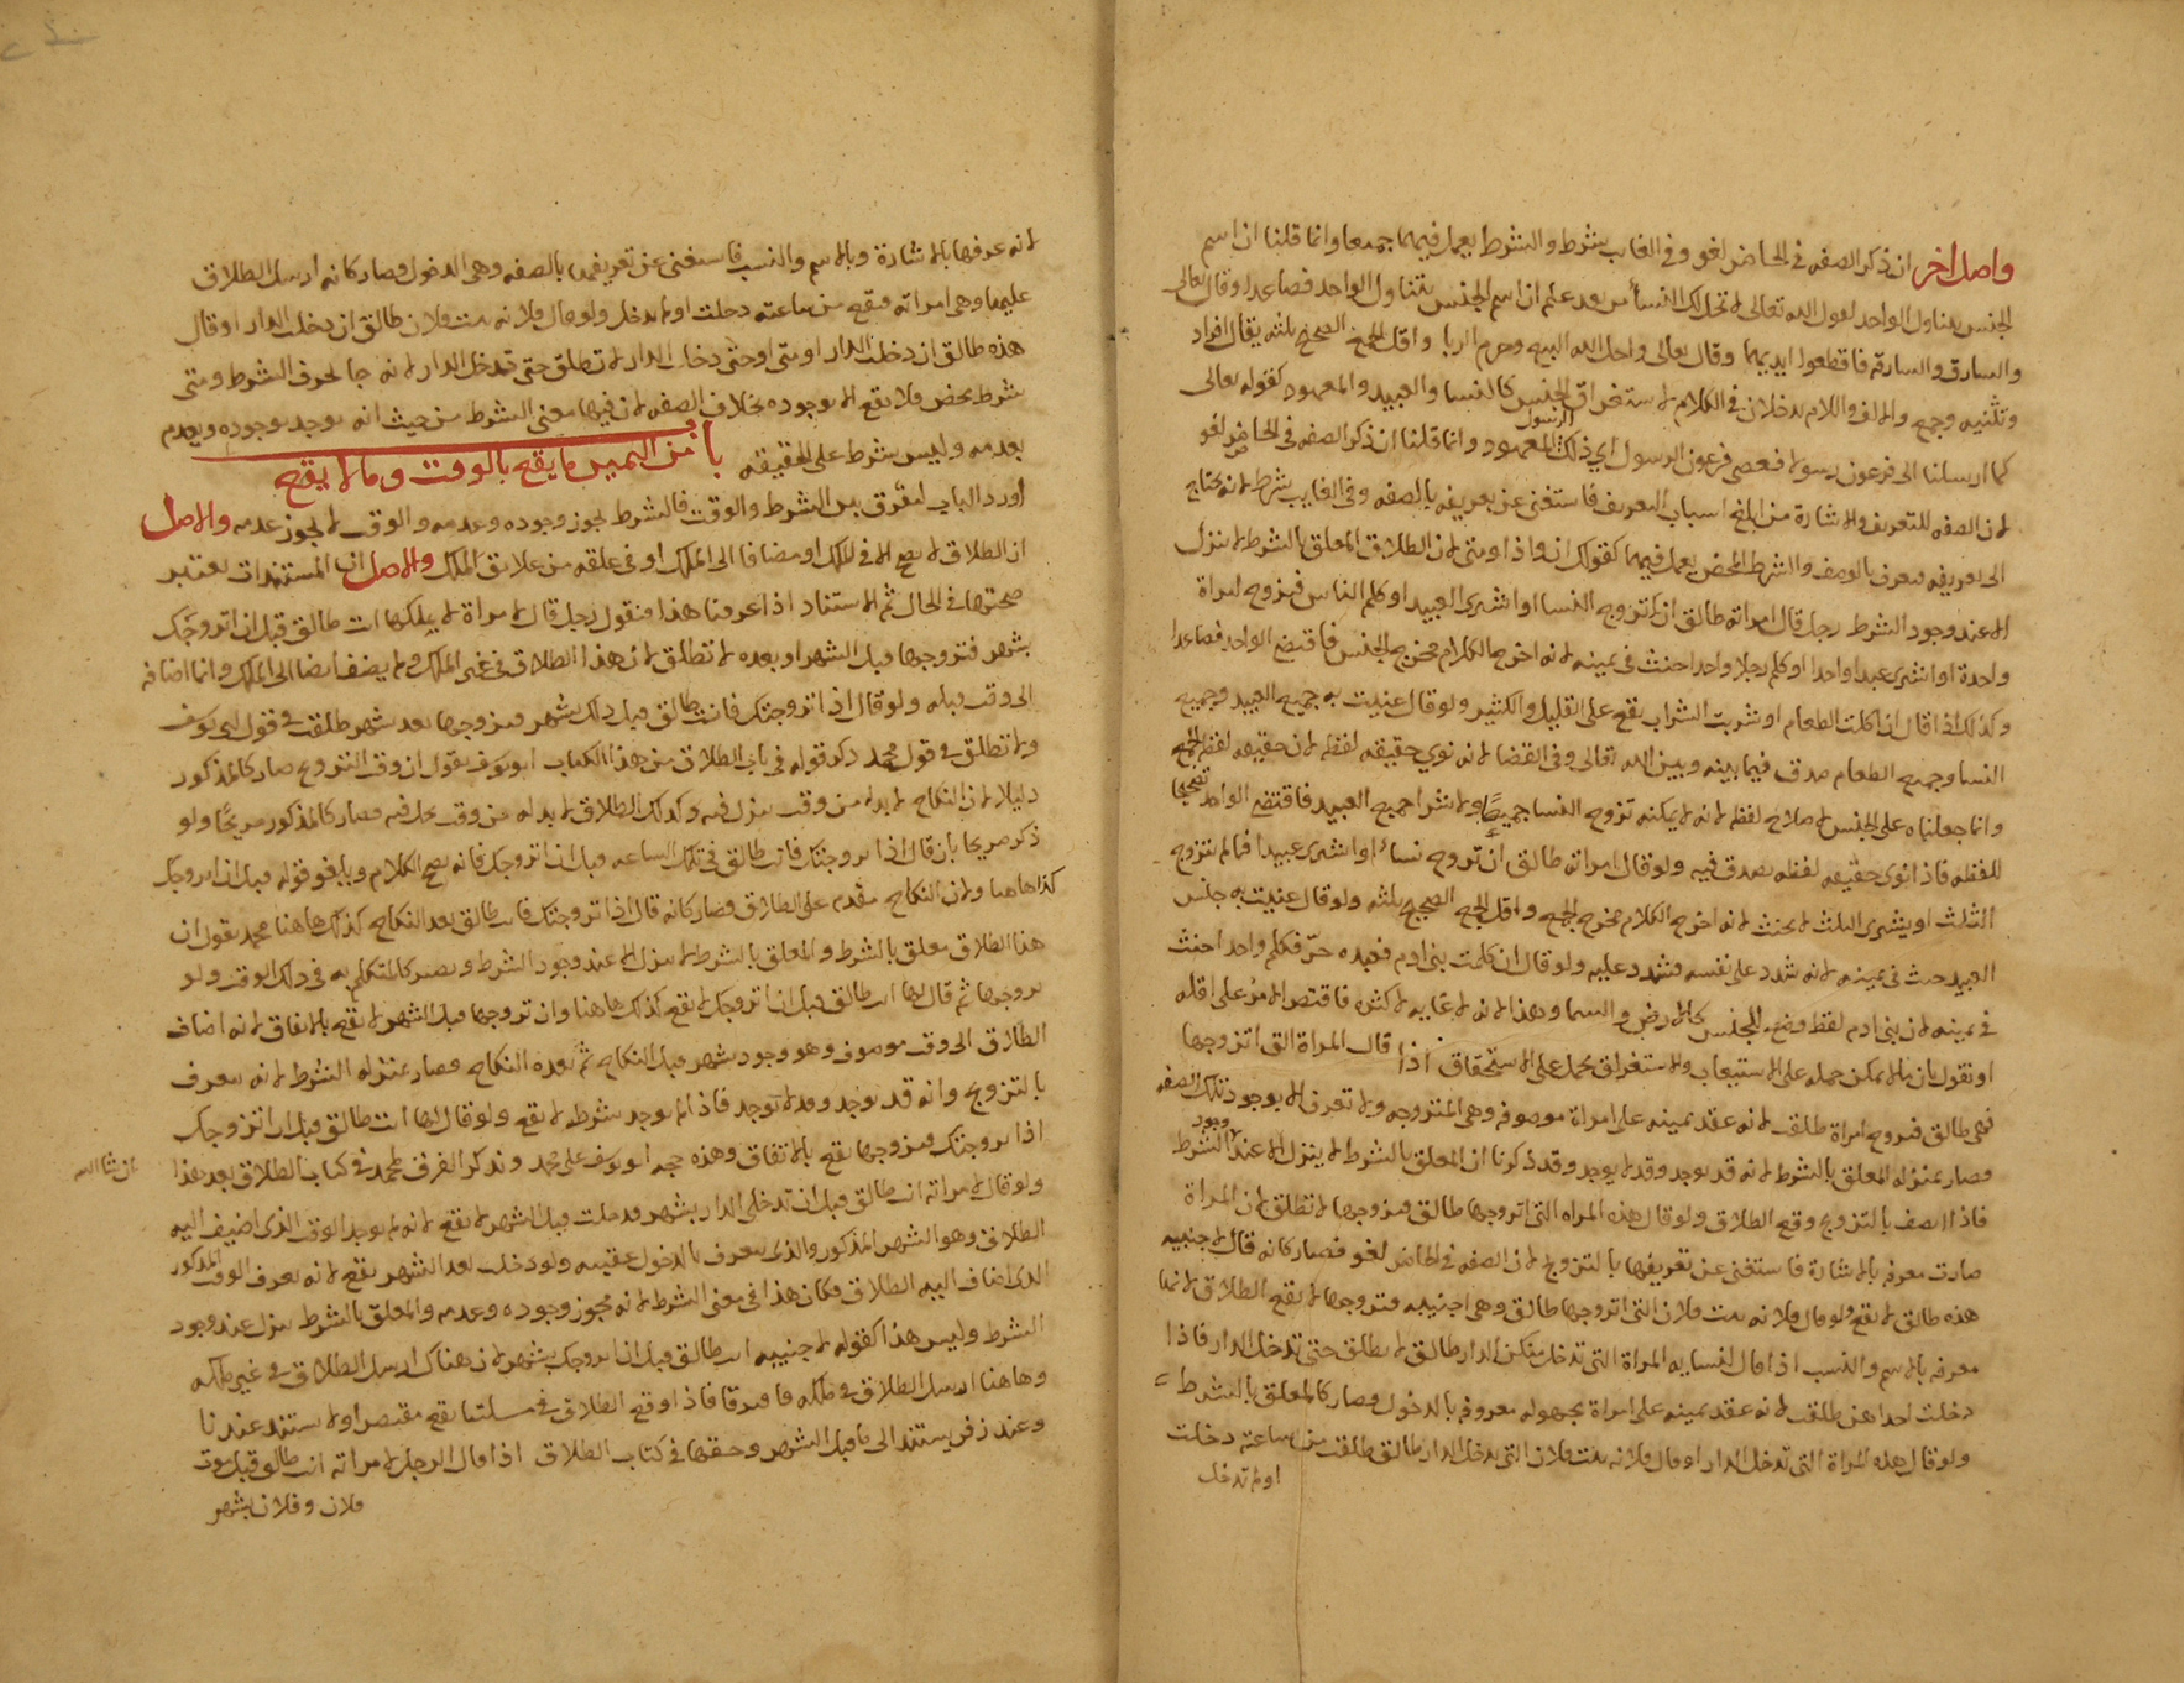 واصل اخر ان ذكر الصفه في الحاضر لغو وفي الغايب شرط والشرط يعمل فيهما جميعا وانما قلنا ان اسم
الجنس يتناول الواحد لقول الله تعالى لا تحل لك النسأ من بعد علم ان اسم الجنس يتناول الواحد فصاعدا وقال تعالى
والسارق والسارقة فاقطعوا ايديهما وقال تعالى واحل الله البيع وحرم الربا واقل الجمع الصحيح ثلثه يقال افراد
وتثنيه وجمع والالف واللام يدخلان في الكلام لاستغراق الجنس كالنسا والعبيد والمعهود كقوله تعالى
كما ارسلنا الى فرعون رسولا فعصى فرعون الرسول اي ذلك الرسول المعهود وانما قلنا ان ذكر الصفه في الحاضر لغو
لان الصفه للتعريف والاشارة من ابلغ اسباب التعريف فاستغنى عن تعريفه بالصفه وفي الغايب شرط لانه يحتاج
الى تعريفه فيعرف بالوصف والشرط المحض يعمل فيهما كقولك ان واذا ومتى لان الطلاق المعلق بالشرط لا ينزل
الا عند وجود الشرط رجل قال امراته طالق ان تزوج النسا او اشترى العبيد او كلم الناس فتزوج امراة
واحدة او اشترى عبدا واحدا او كلم رجلا واحدا حنث في يمينه لانه اخرج الكلام مخرج الجنس فاقتضى الواحد فصاعدا
وكذلك اذا قال ان اكلت الطعام او شربت الشراب يقع على القليل والكثير ولو قال عنيت به جميع العبيد وجميع
النسا وجميع الطعام صدق فيما بينه وبين الله تعالى وفي القضا لانه نوي حقيقه لفظه لان حقيقه لفظه الجمع
وانما جعلناه على الجنس لاصلاح لفظه لانه لا يمكنه تزوج النسا جميعًا ولا شرا جميع العبيد فاقتضى الواحد تصحيحا
للفظه فاذا نوى حقيقه لفظه يصدق فيه ولو قال امراته طالق ان تزوج نسأ او اشترى عبيدا فما لم يتزوج
الثلث او يشترى الثلث لا يحنث لانه اخرج الكلام مخرج الجمع واقل الجمع الصحيح ثلثه ولو قال عنيت به جنس
العبيد حنث في يمينه لانه شدد على نفسه فشدد عليه ولو قال ان كلمت بني ادم فعبده حرّ فكلم واحدا حنث
في يمينه لان بني ادم لفظ وضع للجنس كالارض والسما وهذا لانه لا غايه لاكثره فاقتصر الامر على اقله
او نقول بان ما لا يمكن حمله على الاستيعاب والاستغراق يحمل على الاستحقاق اذا قال المراة التي اتزوجها
فهي طالق فتزوج امراة طلقت لانه عقد يمينه على امراة موصوفه وهي المتزوجه ولا تعرف الا بوجود تلك الصفه
فصار بمنزله المعلق بالشرط لانه قد يوجد وقد لا يوجد وقد ذكرنا ان المعلق بالشرط لا ينزل الا عند وجود الشرط
فاذا اتصف بالتزويج وقع الطلاق ولو قال هذه المراه التي اتزوجها طالق فتزوجها لا تطلق لان المراة
صارت معرفه بالاشارة فاستغنى عن تعريفها بالتزويج لان الصفه في الحاضر لغو فصار كانه قال لاجنبيه
هذه طالق لا يقع ولو قال فلانه بنت فلان التي اتزوجها طالق وهي اجنبيه فتزوجها لا يقع الطلاق لانها
معرفه بالاسم والنسب اذا قال لنسايه المراة التي تدخل منكن الدار طالق لا تطلق حتى تدخل الدار فاذا
دخلت احداهن طلقت لانه عقد يمينه على امراة مجهوله معروفه بالدخول فصار كالمعلق بالشرط
ولو قال هذه المراة التي تدخل الدار او قال فلانه بنت فلان التي تدخل الدار طالق طلقت من ساعته دخلت
او لم تدخل
لانه عرفها بالاشارة وبالاسم والنسب فاستغنى عن تعريفها بالصفه وهي الدخول وصار كانه ارسل الطلاق
عليها وهي امراته فيقع من ساعته دخلت او لم تدخل ولو قال فلانه بنت فلان طالق ان دخلت الدار او قال
هذه طالق ان دخلت الدار او متى او حتى دخلت الدار لا تطلق حتى تدخل الدار لانه جا بحرف الشرط ومتى
شرط محض فلا يقع الا بوجوده بخلاف الصفه لان فيها معنى الشرط من حيث انه يوجد بوجوده ويعدم
بعدمه وليس بشرط على الحقيقه باب من اليمين ما يقع بالوقت وما لا يقع
اورد الباب لتفرق بين الشرط والوقت فالشرط يجوز وجوده وعدمه والوقت لا يجوز عدمه والاصل
ان الطلاق لا يصح الا في الملك او مضافا الى الملك او في علقه من علايق الملك والاصل ان المستندات يعتبر
صحتها في الحال ثم الاستناد اذا عرفنا هذا فنقول رجل قال لامراة لا يملكها انت طالق قبل ان اتزوجك
بشهر فتزوجها قبل الشهر او بعده لا تطلق لان هذا الطلاق في غير الملك ولم يضف ايضا الى الملك وانما اضافه
الى وقت قبله ولو قال اذا تزوجتك فانت طالق قبل ذلك بشهر فتزوجها بعد شهر طلقت في قول ابي يوسف
ولا تطلق في قول محمد ذكر قوله في باب الطلاق من هذا الكتاب ابو يوسف يقول ان وقت التزوج صار كالمذكور
دليلا لان النكاح لا بد له من وقت ينزل فيه وكذلك الطلاق لا بد له من وقت يحل فيه فصار كالمذكور صريحًا ولو
ذكر صريحا بان قال اذا تزوجتك فانت طالق في تلك الساعه قبل ان اتزوجك فانه يصح الكلام ويلغو قوله قبل ان اتزوجك
كذا هاهنا ولان النكاح مقدم على الطلاق فصار كانه قال اذا تزوجتك فانت طالق بعد النكاح كذلك هاهنا محمد يقول ان
هذا الطلاق معلق بالشرط والمعلق بالشرط لا ينزل الا عند وجود الشرط ويصير كالمتكلم به في ذلك الوقت ولو
تزوجها ثم قال لها انت طالق قبل ان اتزوجك لا يقع كذلك هاهنا وان تزوجها قبل الشهر لا يقع بالاتفاق لانه اضاف
الطلاق الى وقت موصوف وهو وجود شهر قبل النكاح ثم بعده النكاح فصار بمنزله الشرط لانه يعرف
بالتزويج وانه قد يوجد وقد لا توجد فاذا لم يوجد شرطه لا يقع ولو قال لها انت طالق قبل ان اتزوجك
اذا تزوجتك فتزوجها يقع بالاتفاق وهذه حجه ابو يوسف على محمد ونذكر الفرق لمحمد في كتاب الطلاق بعد هذا
ان شا الله
ولو قال لامراته انت طالق قبل ان تدخلي الدار بشهر فدخلت قبل الشهر لا يقع لانه لم يوجد الوقت الذي اضيف اليه
الطلاق وهو الشهر المذكور والذي يعرف بالدخول عقيبه ولو دخلت بعد الشهر يقع لانه يعرف الوقت المذكور
الذي اضاف اليه الطلاق فكان هذا في معنى الشرط لانه يجوز وجوده وعدمه والمعلق بالشرط ينزل عند وجود
الشرط وليس هذا كقوله لاجنبيه انت طالق قبل ان اتزوجك بشهر لان هناك ارسل الطلاق في غير ملكه
وهاهنا ارسل الطلاق في ملكه فافترقا فاذا اوقع الطلاق في مسلتنا يقع مقتصرا ولا يستند عندنا
وعند زفر يستند الى ما قبل الشهر وحقها في كتاب الطلاق اذا قال الرجل لامراته انت طالق قبل موت
فلان وفلان بشهر